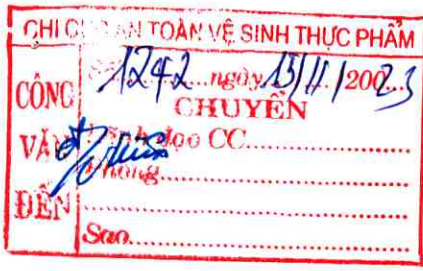 CHI CỤC AN TOÀN VỆ SINH THỰC PHẨM
CÔNG VĂN ĐẾN
Số 1242 ngày 15/11/2023
CHUYỂN
Lãnh đạo CC
Phòng
Sao